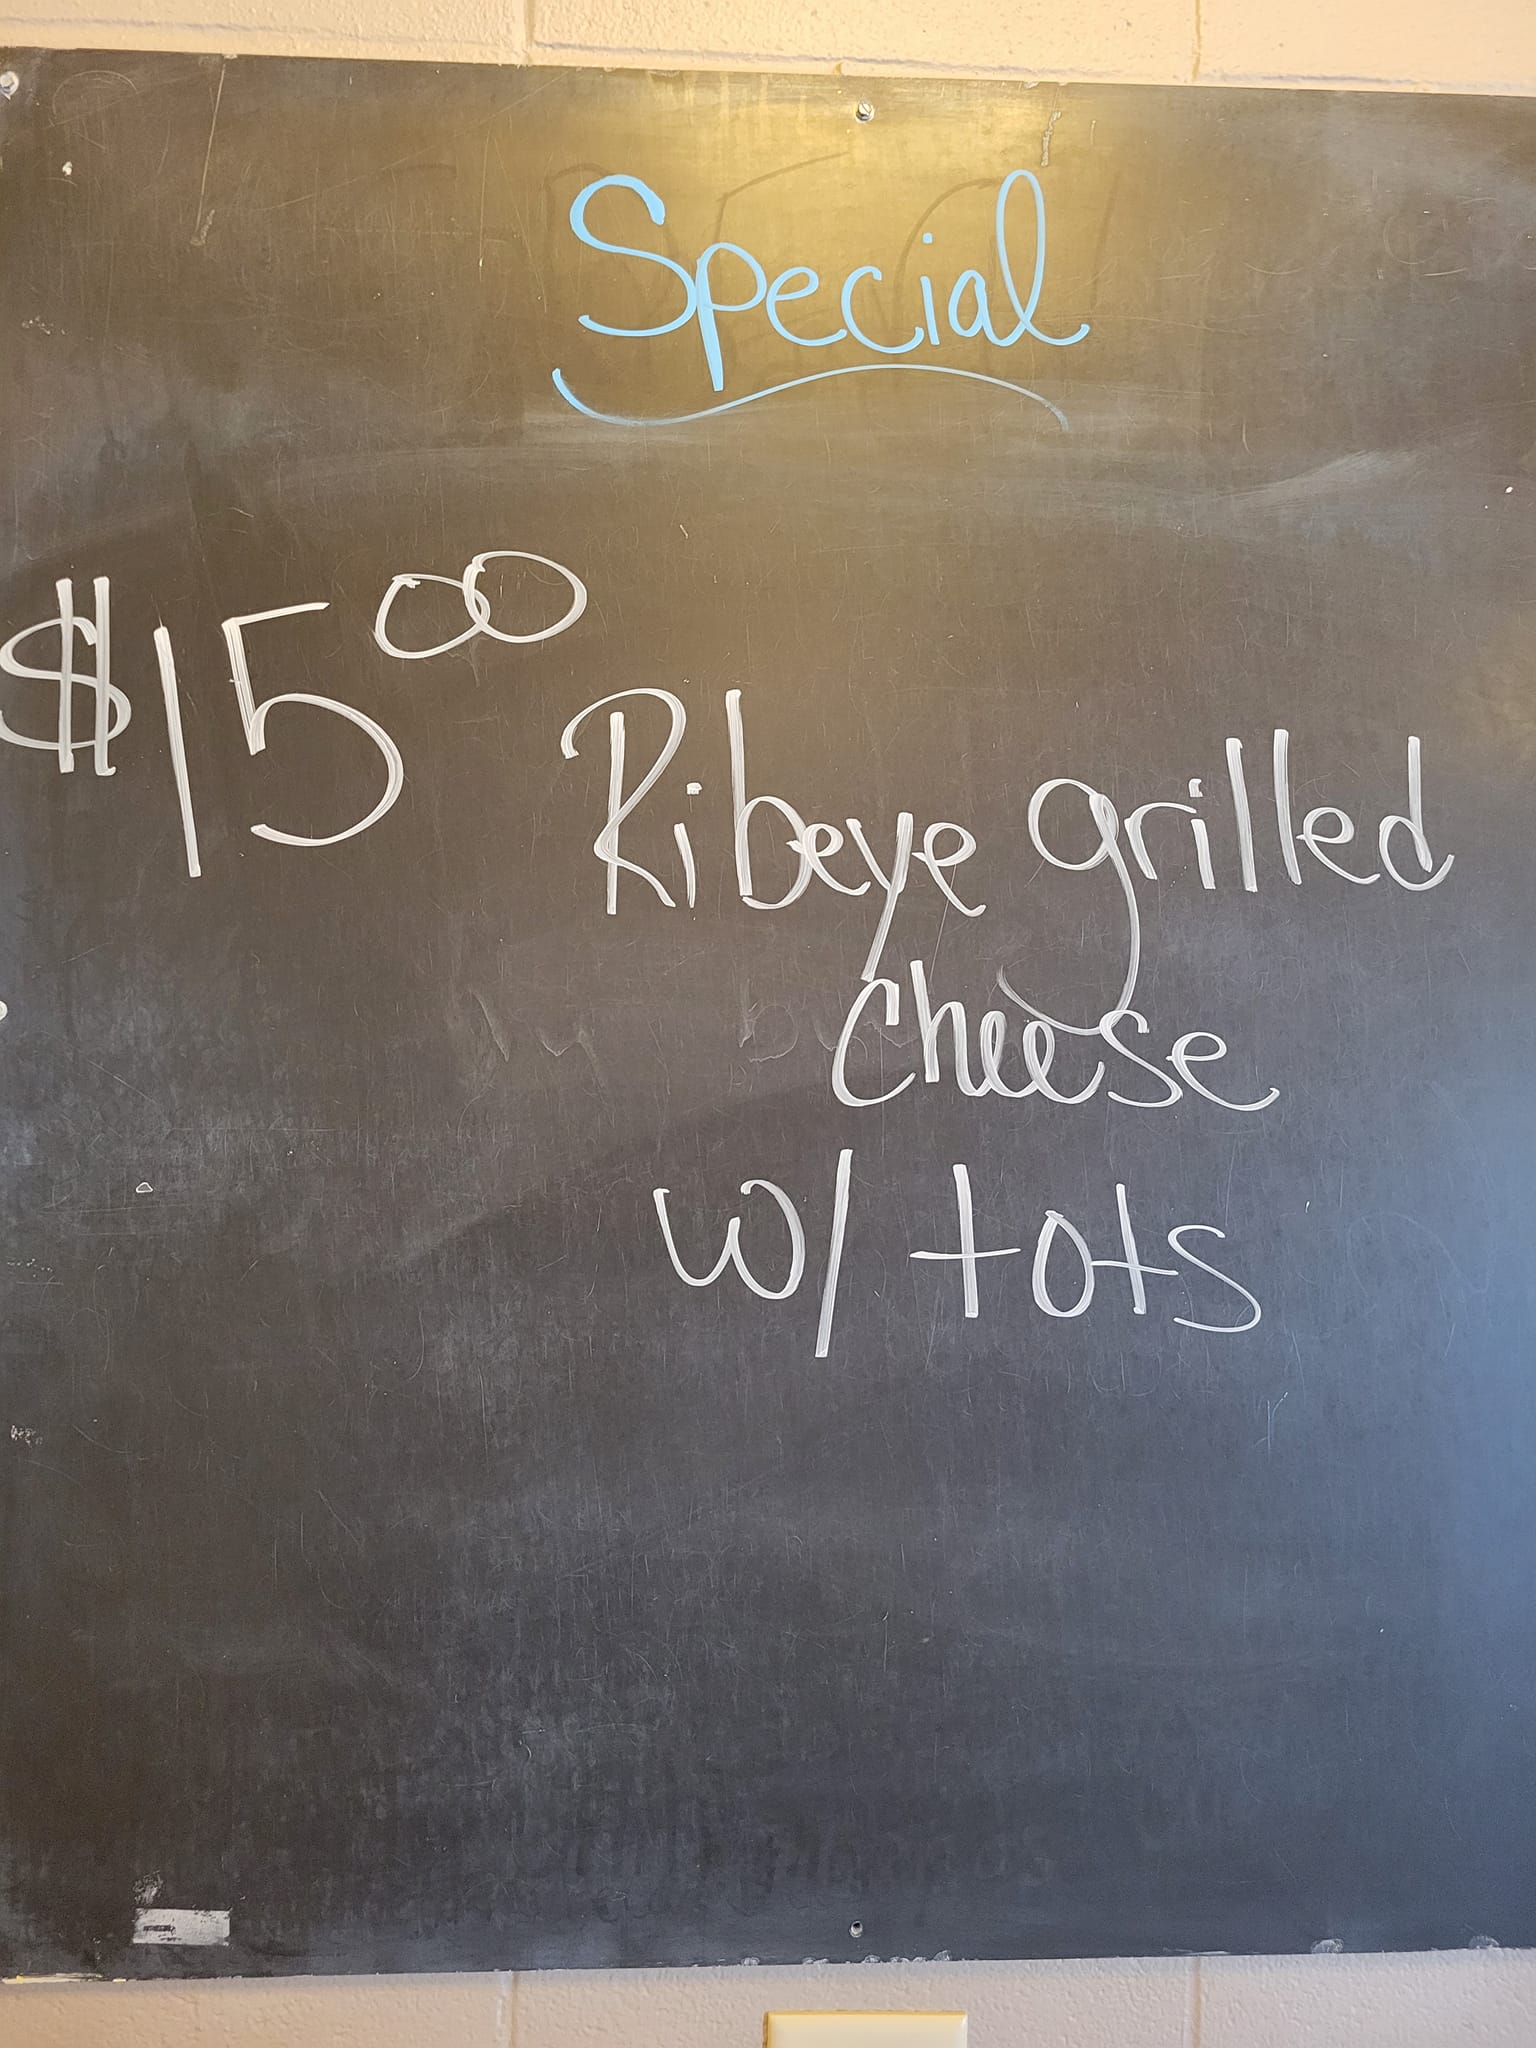 Special
$15.00
Ribeye grilled
cheese
w/ tots